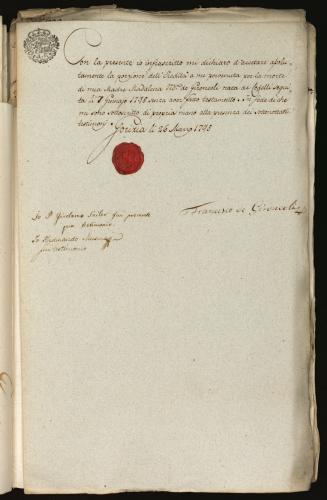 Con la presente io infrascritto mi dichiaro d'accettare assolu-
tamente la porzione dell'Eredità a me pervenuta per la morte
di mia Madre Madalena de Gironcoli nata de segui-
ta li 7 Genajo 1798 senza aver fatto testamento. In fede di che
mi sono sottoscritto di propria mano alla presenza dei sottonotati
testimonj
Gorizia li 26 Marzo 1798
Francesco de Gironcoli
Io P. Girolamo fui presente
per testimonio
Io Ferdinando
fui testimonio